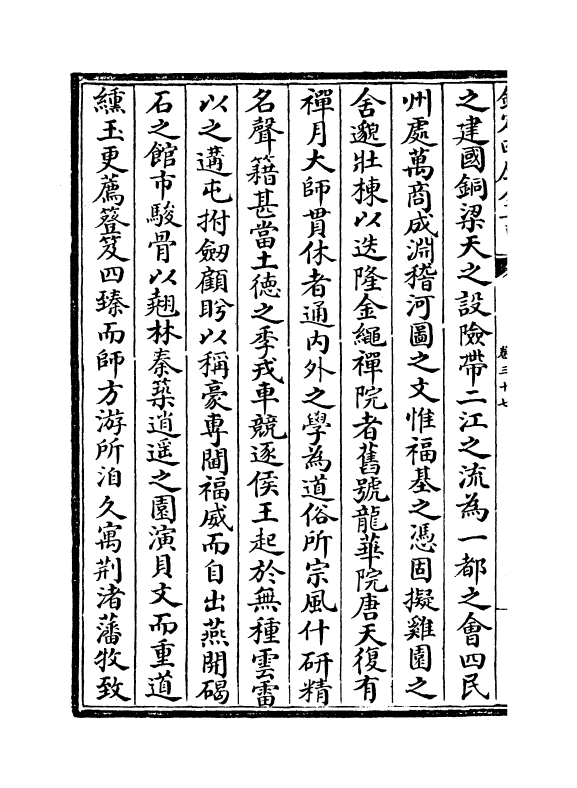 卷三十七
之建國銅梁天之設險帶二江之流為一都之會四民
州處萬商成淵稽河圖之文惟福基之憑固擬雞園之
舍邈壯棟以迭隆金繩禪院者舊號龍華院唐天復有
禪月大師貫休者通內外之學為道俗所宗風什研精
名聲籍甚當土徳之季戎車競逐侯王起於無種雲雷
以之遘屯拊劒顧眄以稱豪専閫福威而自出燕開碣
石之館市駿骨以翹林秦築逍遥之園演貝文而重道
纁玉更薦簦笈四臻而師方游所洎久寓荆渚藩牧致